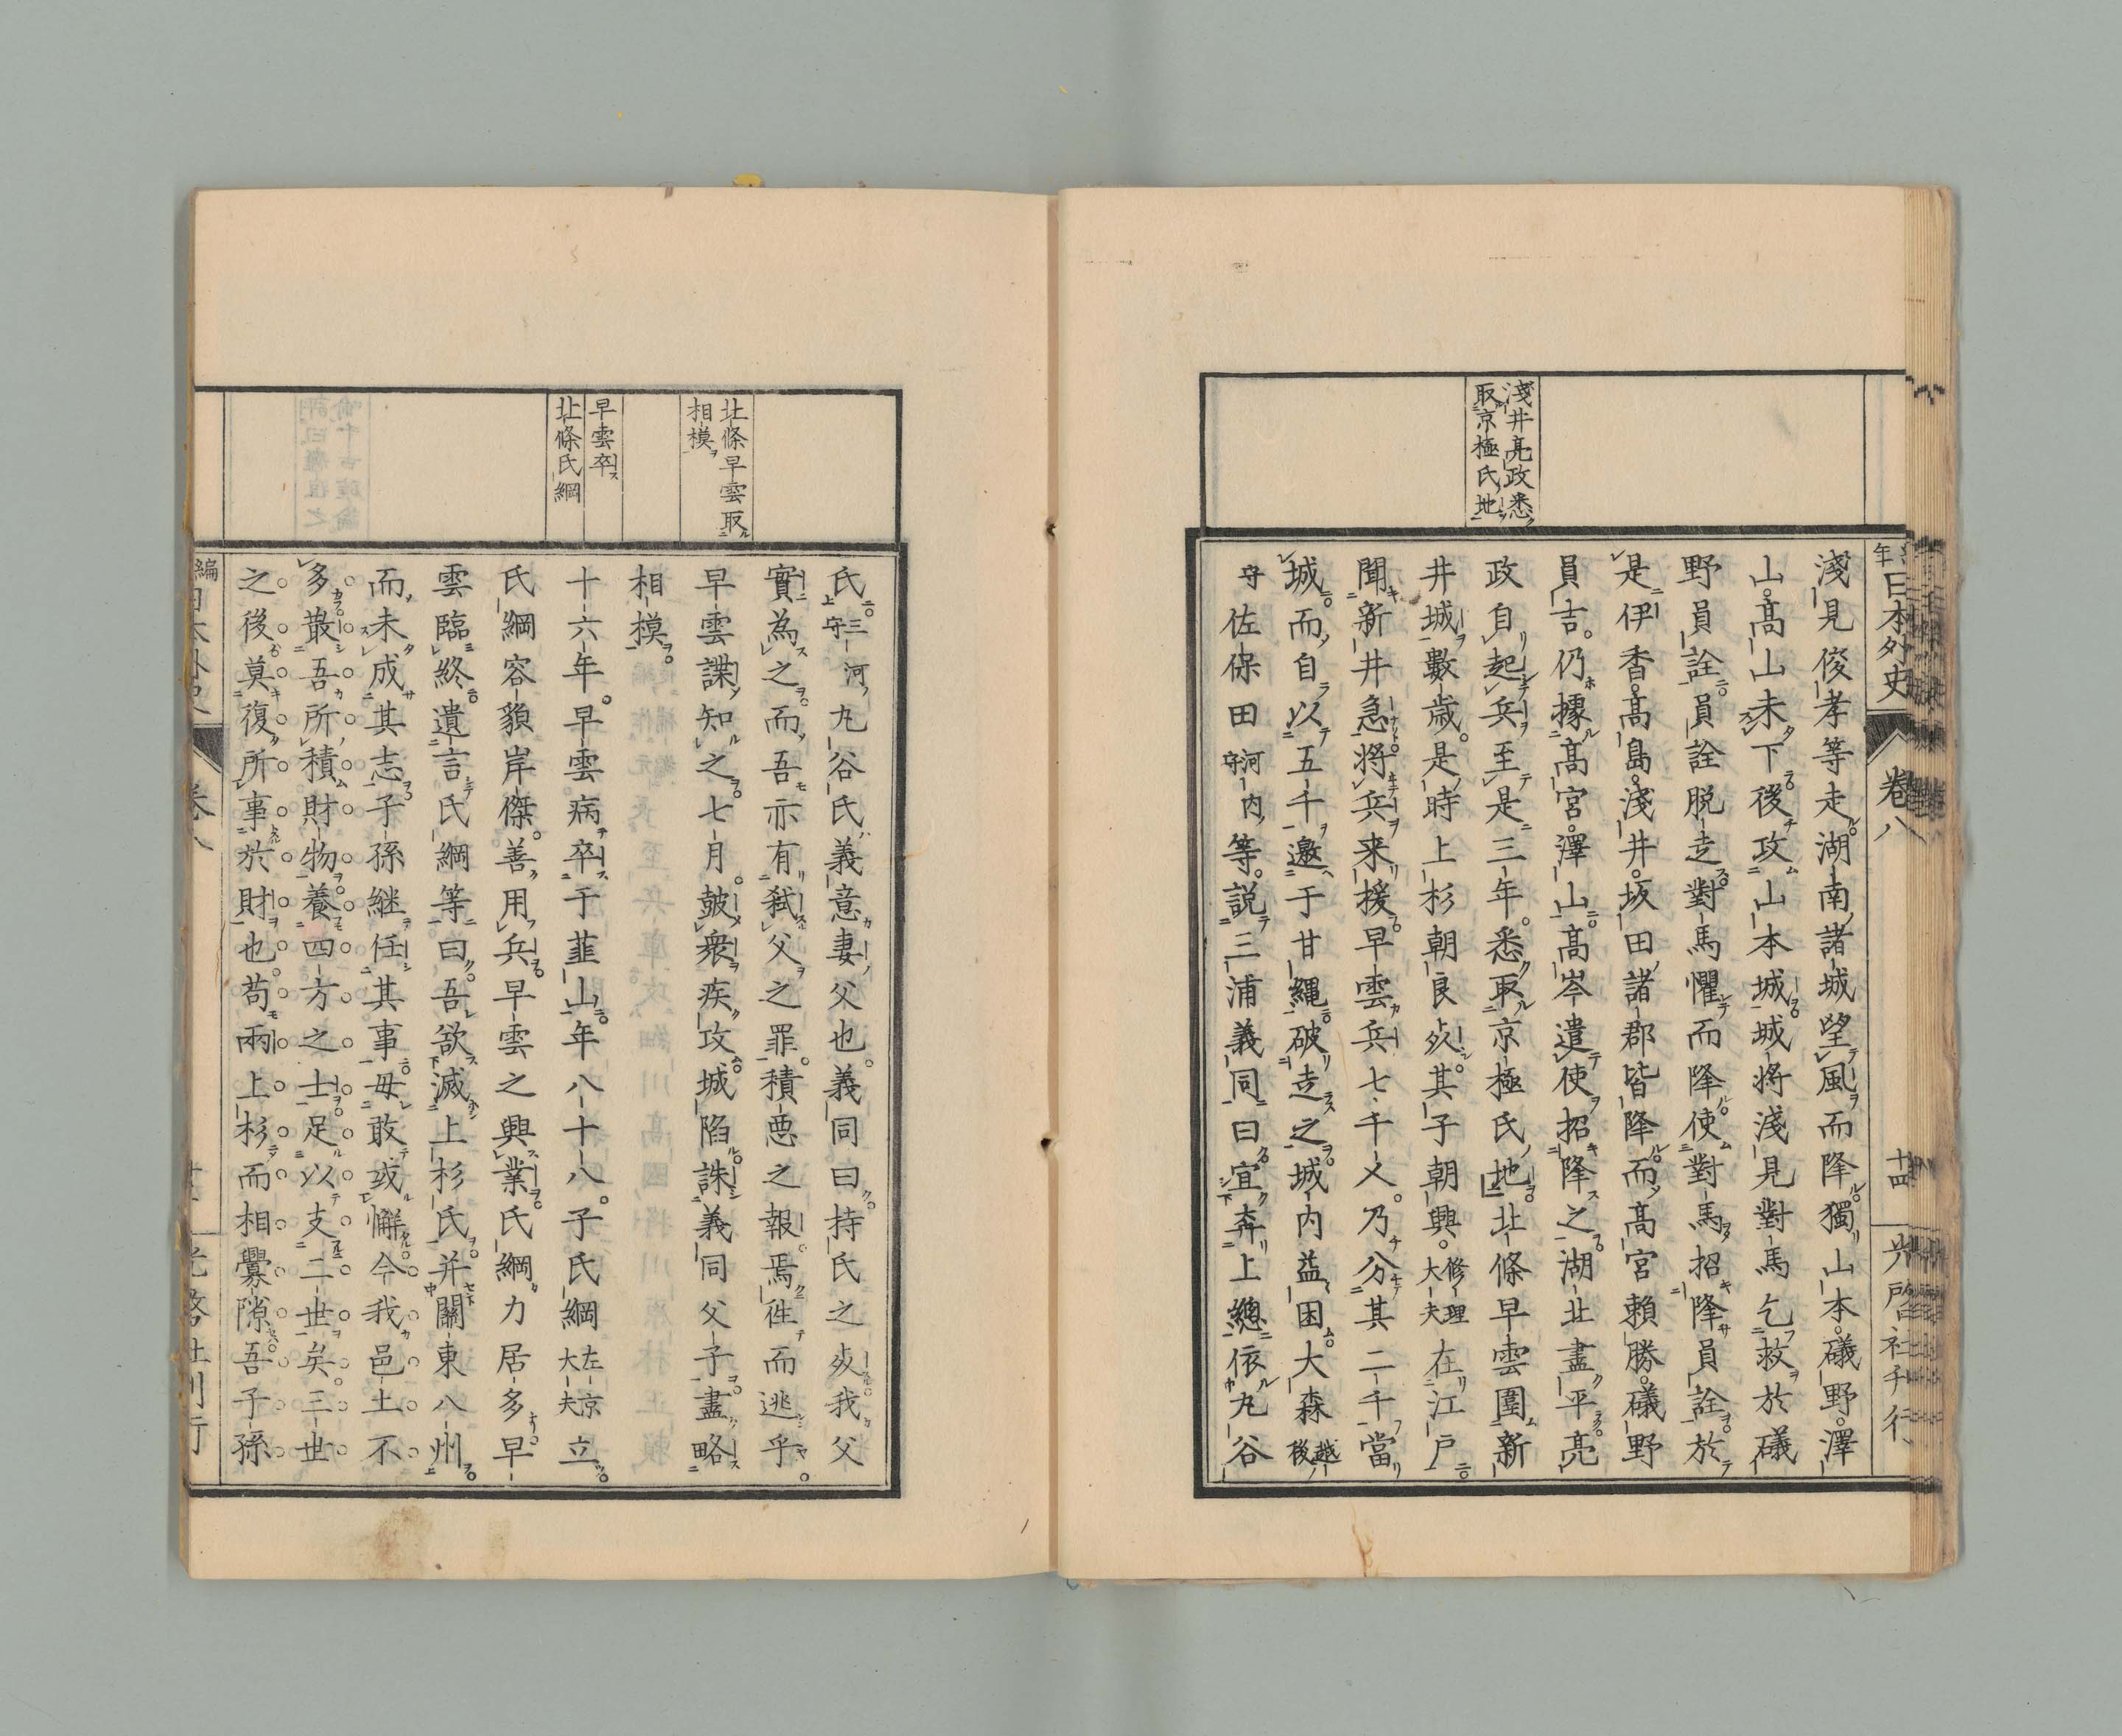 年日本外史
卷八
十四
光啓社刊行
淺井亮政悉
取京極氏地
淺見俊孝等走湖南諸城望風而降獨山本礒野澤
山髙山未下後攻山本城城將淺見對馬乞救於礒
野員詮員詮脱走對馬懼而降使對馬招降員詮於
是伊香髙島淺井坂田諸郡皆降而髙宮賴勝礒野
員吉仍據髙宮澤山髙岑遣使招降之湖北盡平亮
政自起兵至是三年悉取京極氏地北條早雲圍新
井城數歳是時上杉朝良歿其子朝興修理大夫在江戸
聞新井急將兵来援早雲兵七千人乃分其二千當
城而自以五千邀于甘繩破走之城内益困大森越後
守佐保田河内守等説三浦義同曰宜奔上總依丸谷
北條早雲取
相模
早雲卒
北條氏綱
氏三河上守丸谷氏義意妻父也義同曰持氏之歿我父
實為之而吾亦有弑父之罪積悪之報焉徃而逃乎
早雲諜知之七月皷衆疾攻城陷誅義同父子盡略
相模
十六年早雲病卒于韮山年八十八子氏綱左京大夫立
氏綱容貌岸傑善用兵早雲之興業氏綱力居多早
雲臨終遺言氏綱等曰吾欲滅上杉氏并關東八州
而未成其志子孫継任其事毋敢或懈今我邑土不
多散吾所積財物養四方之士足以支二世矣三世
之後莫復所事於財也苟兩上杉而相釁隙吾子孫
編日本外史
卷八
光啓社刊行